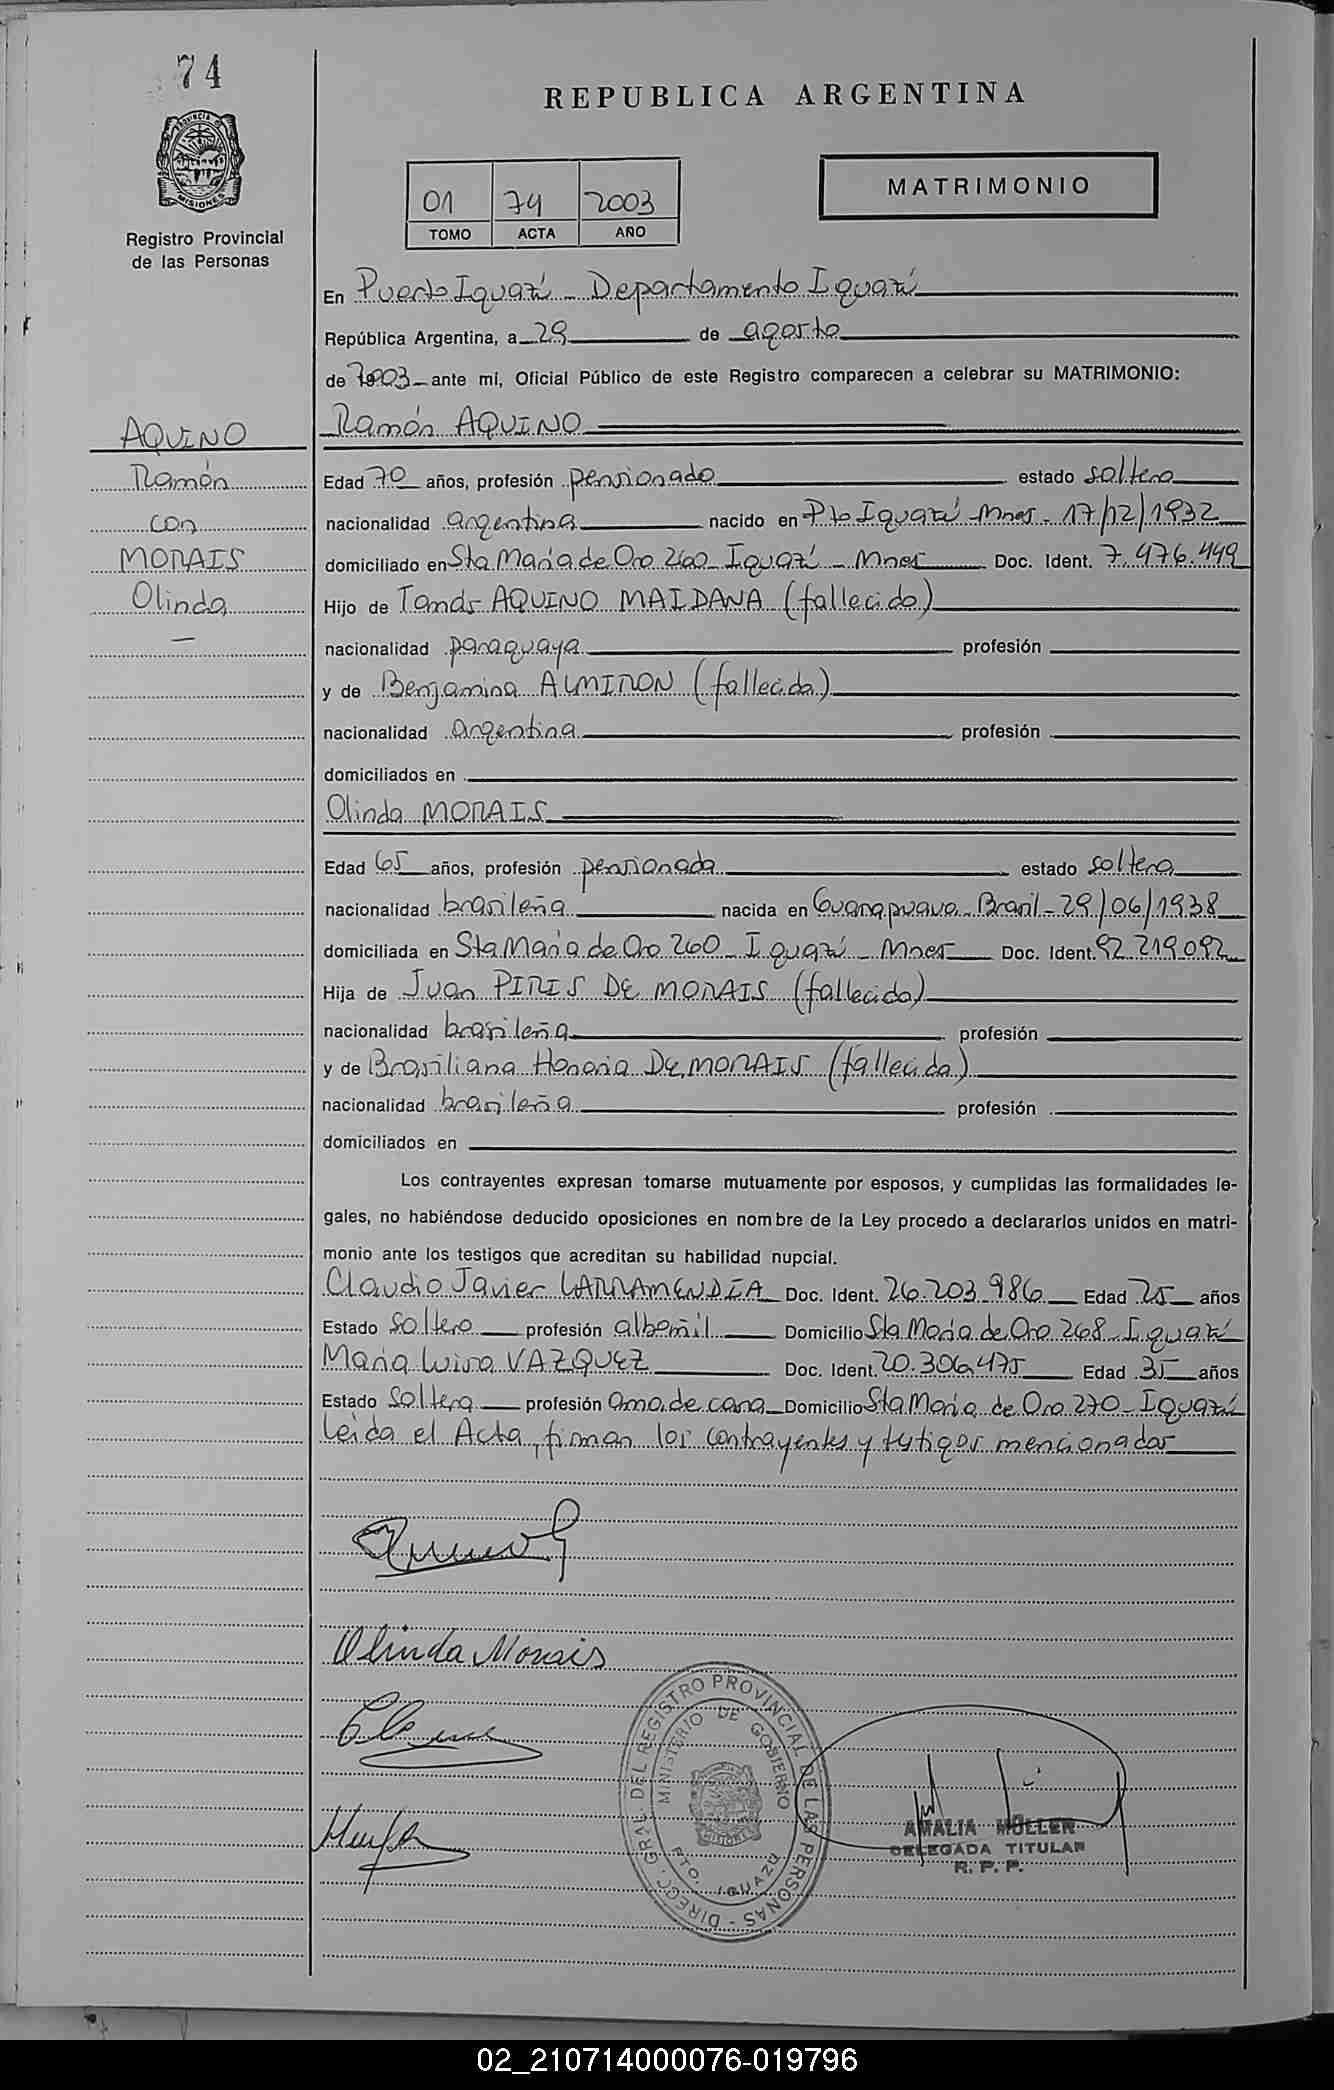 74
REPUBLICA ARGENTINA
PROVINCIA DE
MISIONES
Registro Provincial
de las Personas
01 74 2003
TOMO ACTA AÑO
MATRIMONIO
En Puerto Iguazú - Departamento Iguazú
República Argentina, a 29 de agosto
de 2003 ante mí, Oficial Público de este Registro comparecen a celebrar su MATRIMONIO:
AQUINO
Ramón
con
MORAIS
Olinda
Ramón AQUINO
Edad 70 años, profesión pensionado estado soltero
nacionalidad argentina nacido en Pto Iguazú - Mnes - 17/12/1932
domiciliado en Sta María de Oro 260 - Iguazú - Mnes Doc. Ident. 7.476.449
Hijo de Tomás AQUINO MAIDANA (fallecido)
nacionalidad paraguaya profesión
y de Benjamina ALMIRON (fallecida)
nacionalidad argentina profesión
domiciliados en
Olinda MORAIS
Edad 65 años, profesión pensionada estado soltera
nacionalidad brasileña nacida en Guarapuava - Brasil - 29/06/1938
domiciliada en Sta María de Oro 260 - Iguazú - Mnes Doc. Ident. 92.219.092
Hija de Juan PIRIS DE MORAIS (fallecido)
nacionalidad brasileña profesión
y de Brasiliana Honoria DE MORAIS (fallecida)
nacionalidad brasileña profesión
domiciliados en
Los contrayentes expresan tomarse mutuamente por esposos, y cumplidas las formalidades le-
gales, no habiéndose deducido oposiciones en nombre de la Ley procedo a declararlos unidos en matri-
monio ante los testigos que acreditan su habilidad nupcial.
Claudio Javier LARRAMENDIA Doc. Ident. 26.203.986 Edad 25 años
Estado soltero profesión albañil Domicilio Sta María de Oro 268 - Iguazú
Maria Luisa VAZQUEZ Doc. Ident. 20.306.475 Edad 35 años
Estado soltera profesión ama de casa Domicilio Sta María de Oro 270 - Iguazú
Leida el Acta, firman los contrayentes y testigos mencionados
Olinda Morais
DIRECC. GRAL. DEL REGISTRO PROVINCIAL DE LAS PERSONAS -
MINISTERIO DE GOBIERNO
MISIONES
PTO. IGUAZU
AMALIA MÜLLER
DELEGADA TITULAR
R. P. P.
02_210714000076-019796